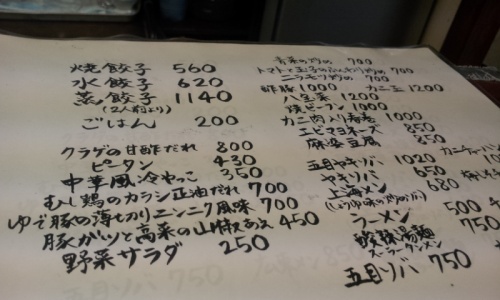 焼餃子 560
水餃子 620
蒸し餃子 1140
(2人前より)
ごはん 200
クラゲの甘酢だれ 800
ピータン 430
中華風冷やっこ 350
むし鶏のカラシ正油だれ 700
ゆで豚の薄切りニンニク風味 700
豚ガツと高菜の山椒あえ 450
野菜サラダ 250
青菜の炒め 700
トマトと玉子のふんわり炒め 700
ニラモヤシ炒め 700
酢豚 1000 カニ玉 1200
八宝菜 1200
焼ビーフン 1000
カニ肉入り春巻 1000
エビマヨネーズ 850
麻婆豆腐 850
五目ヤキソバ 1020 カニチャーハン
ヤキソバ 650
上海メン 680
(しょうゆ味の炒めそば)
ラーメン 500
酸辣湯麺 750
スーラータンメン
五目ソバ 750